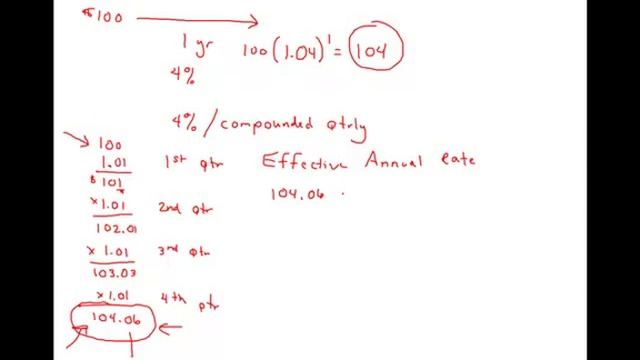 $100
1 yr 100(1.04)¹ = 104
4%
4% / compounded qtrly
100
1.01 1st qtr Effective Annual rate
$101 104.06 -
x 1.01 2nd qtr
102.01
x 1.01 3rd qtr
103.03
x 1.01 4th qtr
104.06